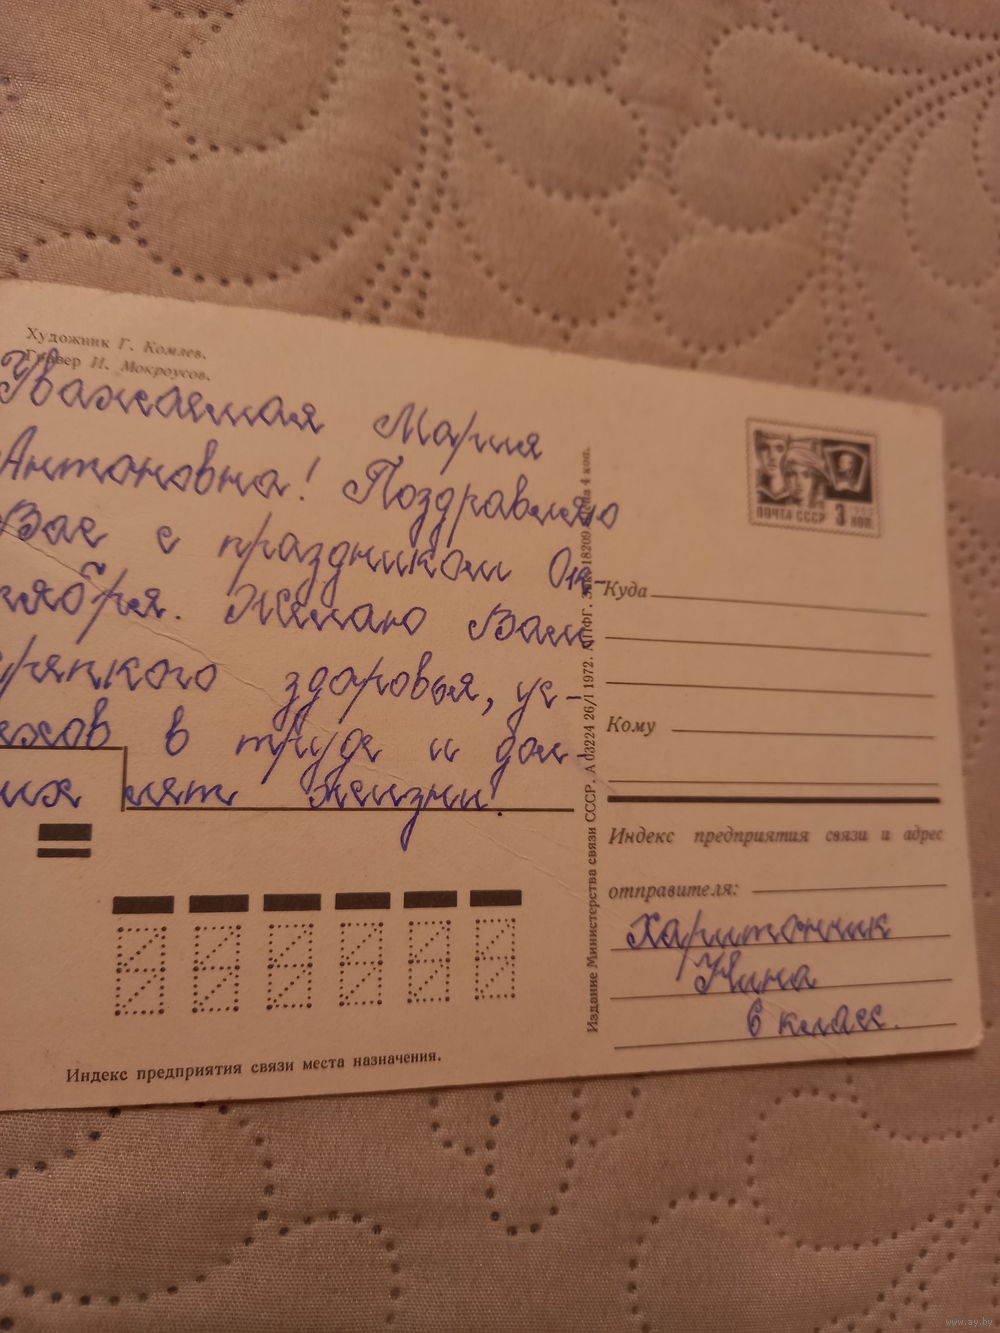 Художник Г. Комлев.
Гравер И. Мокроусов.
Уважаемая Мария
Антоновна! Поздравляю
Вас с праздником Ок-
тября. Желаю Вам
крепкого здоровья, ус-
ехов в труде и дол-
гих лет жизни!
Индекс предприятия связи места назначения.
Издание Министерства связи СССР. А 03224 26/I 1972. 18209 Цена 4 коп.
ПОЧТА СССР 3 КОП.
Куда
Кому
Индекс предприятия связи и адрес
отправителя:
Харитончик
Нина
6 класс.
www.ay.by